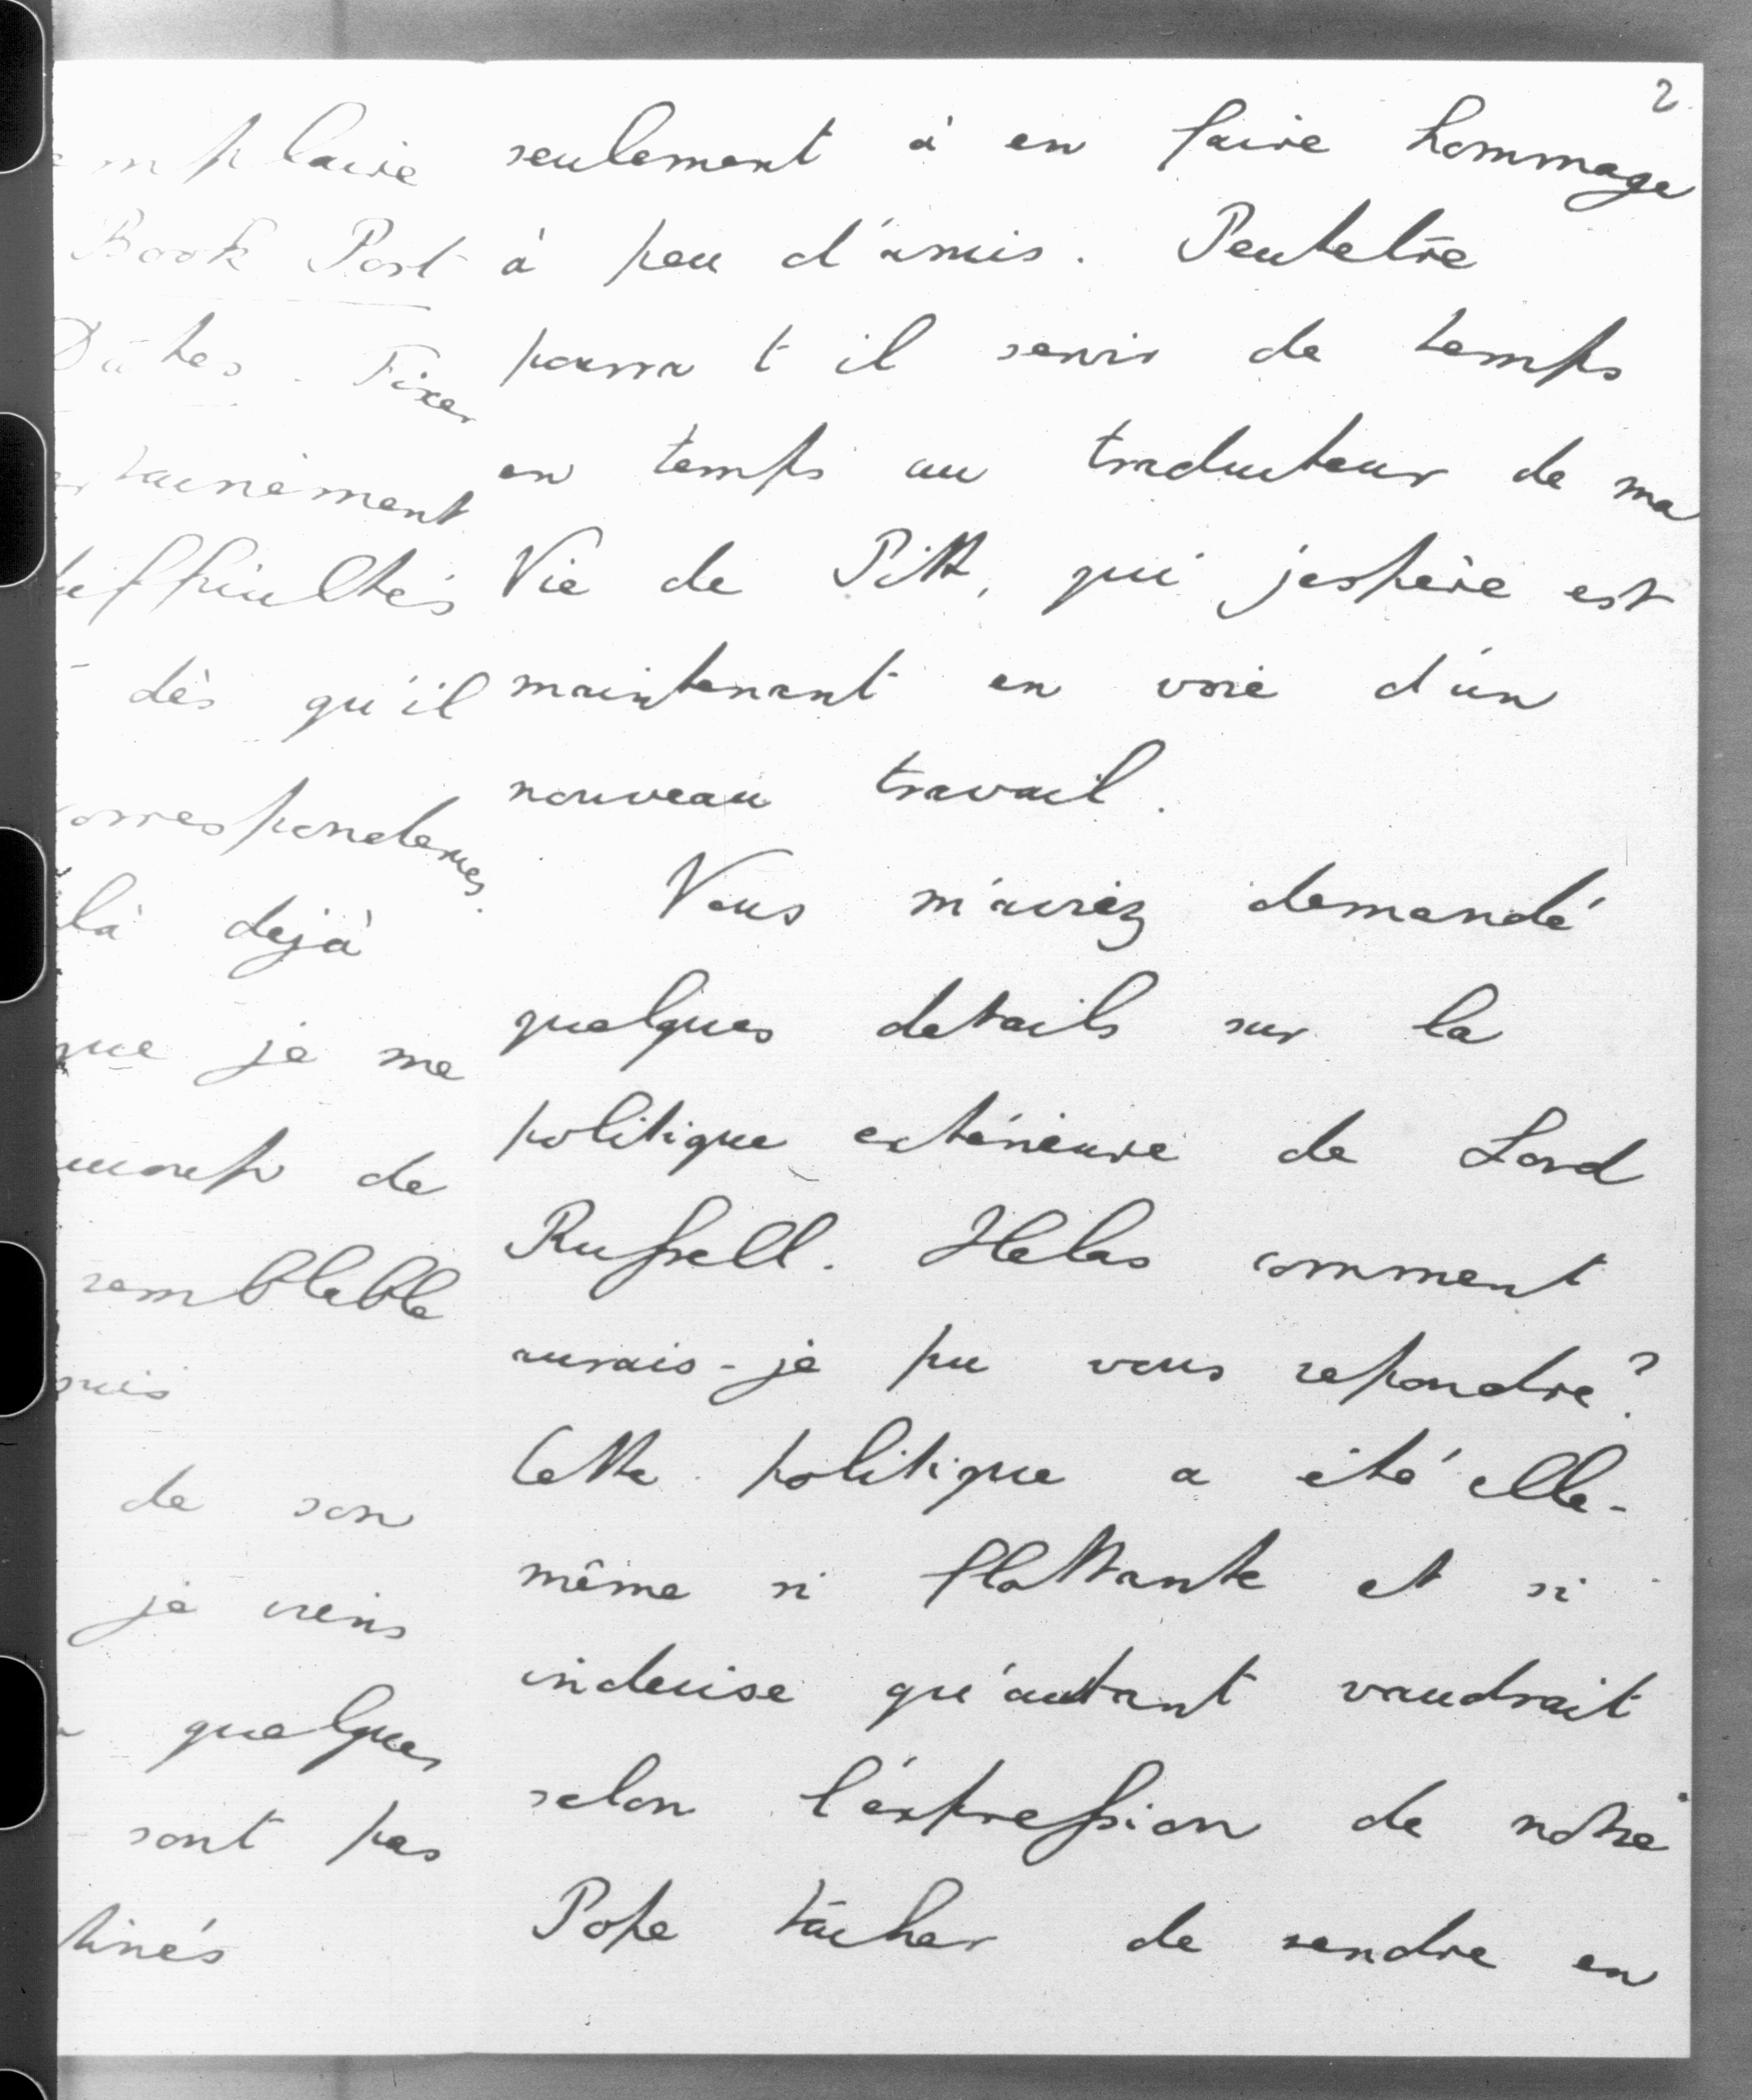 2
mplaire
Book Post
Dâtes. Fixer
tainement
difficultés
dès qu'il
orrespondences.
là dejà
que je me
de
semblable
de son
je viens
quelques
sont pas
tinés
seulement à en faire hommage
à peu d'amis. Peutetre
pourra t il servir de temps
en temps au traducteur de ma
Vie de Pitt, qui j'espère est
maintenant en voie d'un
nouveau travail.
Vous m'aviez demandé
quelques details sur la
politique extérieure de Lord
Russell. Helas comment
aurais-je pu vous repondre?
Cette politique a été elle-
même si flottante et si
indecise qu'autant vaudrait
selon l'éxpression de nôtre
Pope tâcher de rendre en